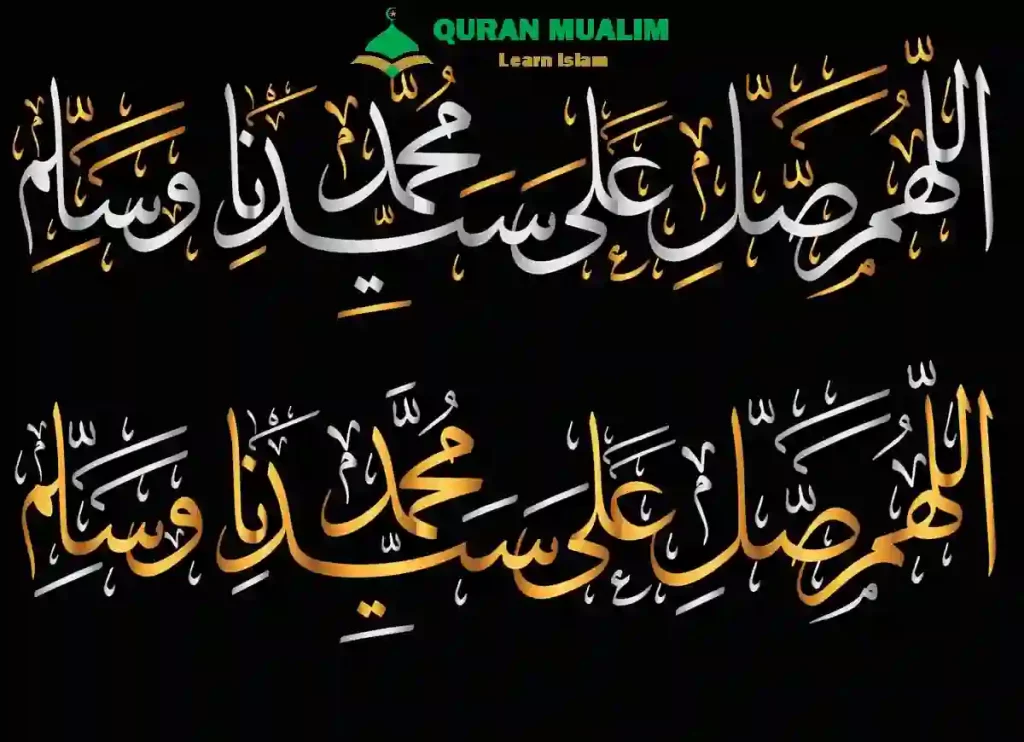 QURAN MUALIM
Learn Islam
اللّٰهُمَّ صَلِّ عَلَى سَيِّدِنَا مُحَمَّدٍ وَسَلِّمْ
اللّٰهُمَّ صَلِّ عَلَى سَيِّدِنَا مُحَمَّدٍ وَسَلِّمْ